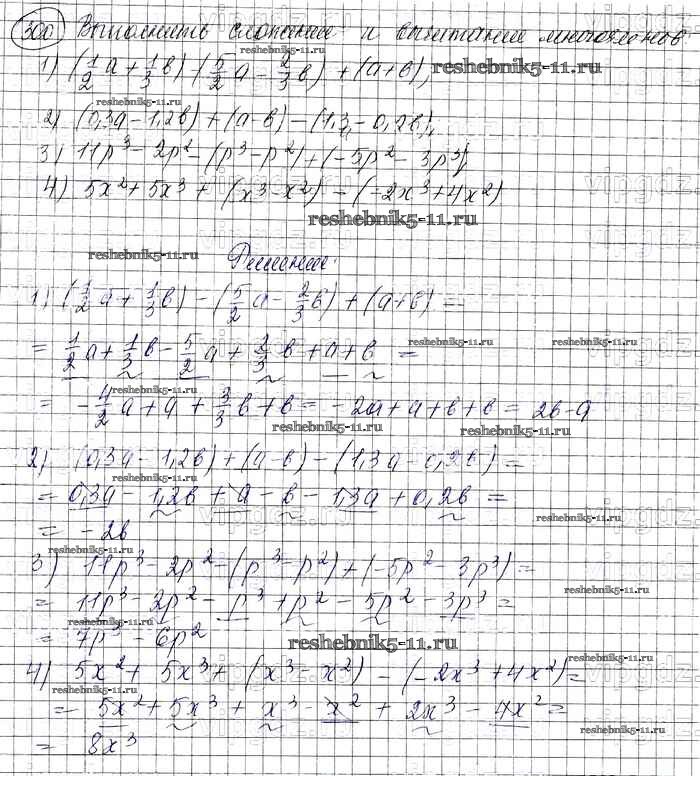 300 Выполнить сложение и вычитание многочленов
1) (1/2 a + 1/3 в) - (5/2 a - 2/3 в) + (a+в),
2) (0,3a - 1,2в) + (a-в) - (1,3a - 0,2в),
3) 11p³ - 2p² - (p³ - p²) + (-5p² - 3p³),
4) 5x² + 5x³ + (x³ - x²) - (-2x³ + 4x²)
Решение:
1) (1/2 a + 1/3 в) - (5/2 a - 2/3 в) + (a+в) =
= 1/2 a + 1/3 в - 5/2 a + 2/3 в + a + в =
= - 4/2 a + a + 3/3 в + в = -2a + a + в + в = 2в - a
2) (0,3a - 1,2в) + (a-в) - (1,3a - 0,2в) =
= 0,3a - 1,2в + a - в - 1,3a + 0,2в =
= -2в
3) 11p³ - 2p² - (p³ - p²) + (-5p² - 3p³) =
= 11p³ - 2p² - p³ + p² - 5p² - 3p³ =
= 7p³ - 6p²
4) 5x² + 5x³ + (x³ - x²) - (-2x³ + 4x²) =
= 5x² + 5x³ + x³ - x² + 2x³ - 4x² =
= 8x³
reshebnik5-11.ru
vipgdz.ru